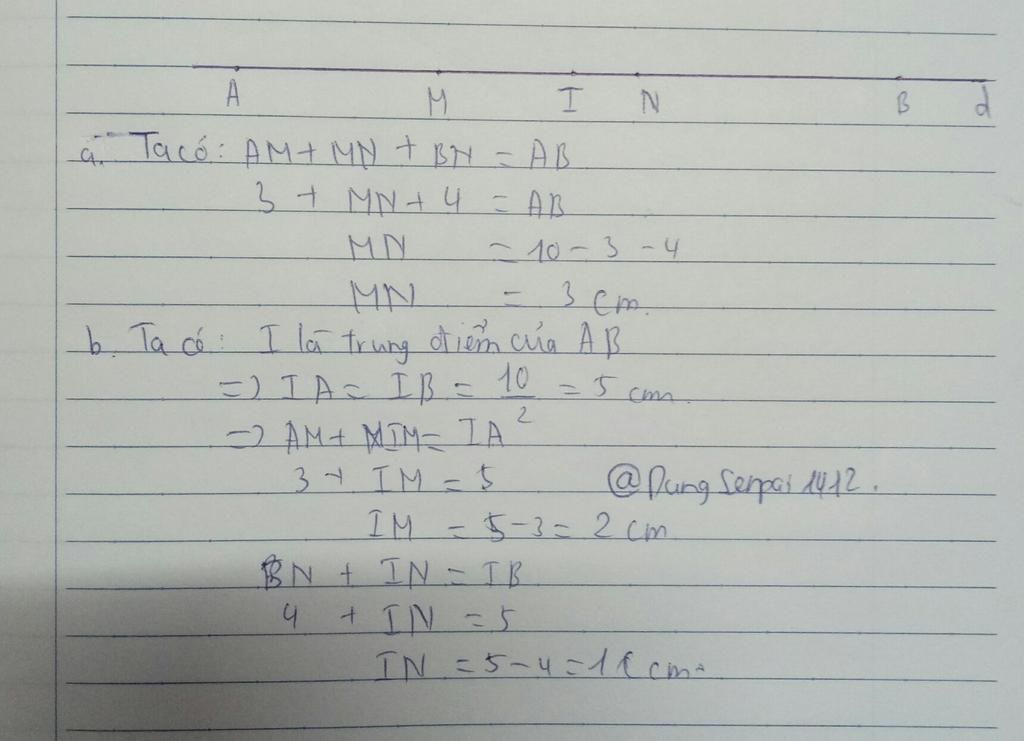 A M I N B d
a. Ta có: AM + MN + BN = AB
3 + MN + 4 = AB
MN = 10 - 3 - 4
MN = 3 cm.
b. Ta có: I là trung điểm của AB
=> IA = IB = 10/2 = 5 cm.
=> AM + IM = IA
3 + IM = 5 @DungSenpai1412.
IM = 5 - 3 = 2 cm
BN + IN = IB
4 + IN = 5
IN = 5 - 4 = 1 (cm.